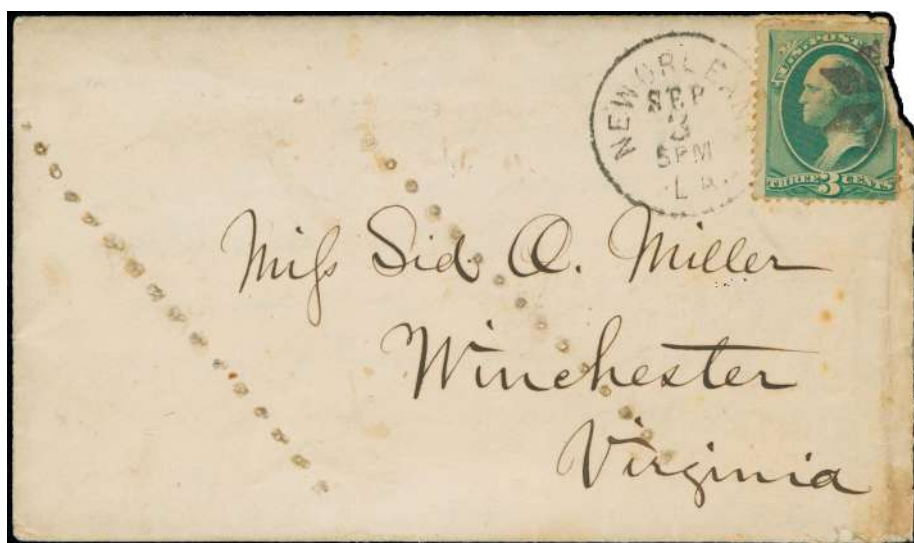 NEW ORLEAN
SEP
3
5PM
LA.
U.S. POST
THREE 3 CENTS
Miſs Sid O. Miller
Winchester
Virginia